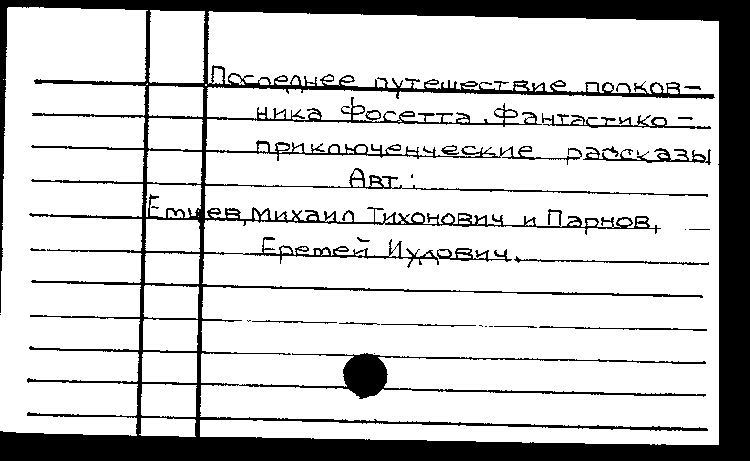 Последнее путешествие полков-
ника Фосетта. Фантастико-
приключенческие рассказы
Авт.:
Емцев, Михаил Тихонович и Парнов,
Еремей Иудович.